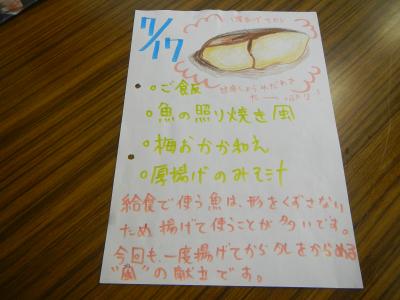 7/17
(揚げてから)
。ご飯
。魚の照り焼き風
。梅おかかねえ
。厚揚げのみそ汁
給食で使う魚は、形をくずさない
ため揚げて使うことが多いです。
今回も、一度揚げてからタレをからめる
"風"の献立です。